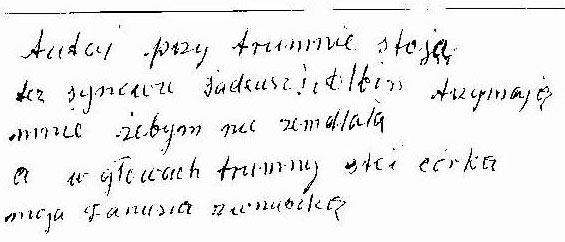 tutaj przy trumnie stoją
też synowie Tadeusz i Albin trzymają
mnie żebym nie zemdlała
a w głowach trumny stoi córka
moja Danusia